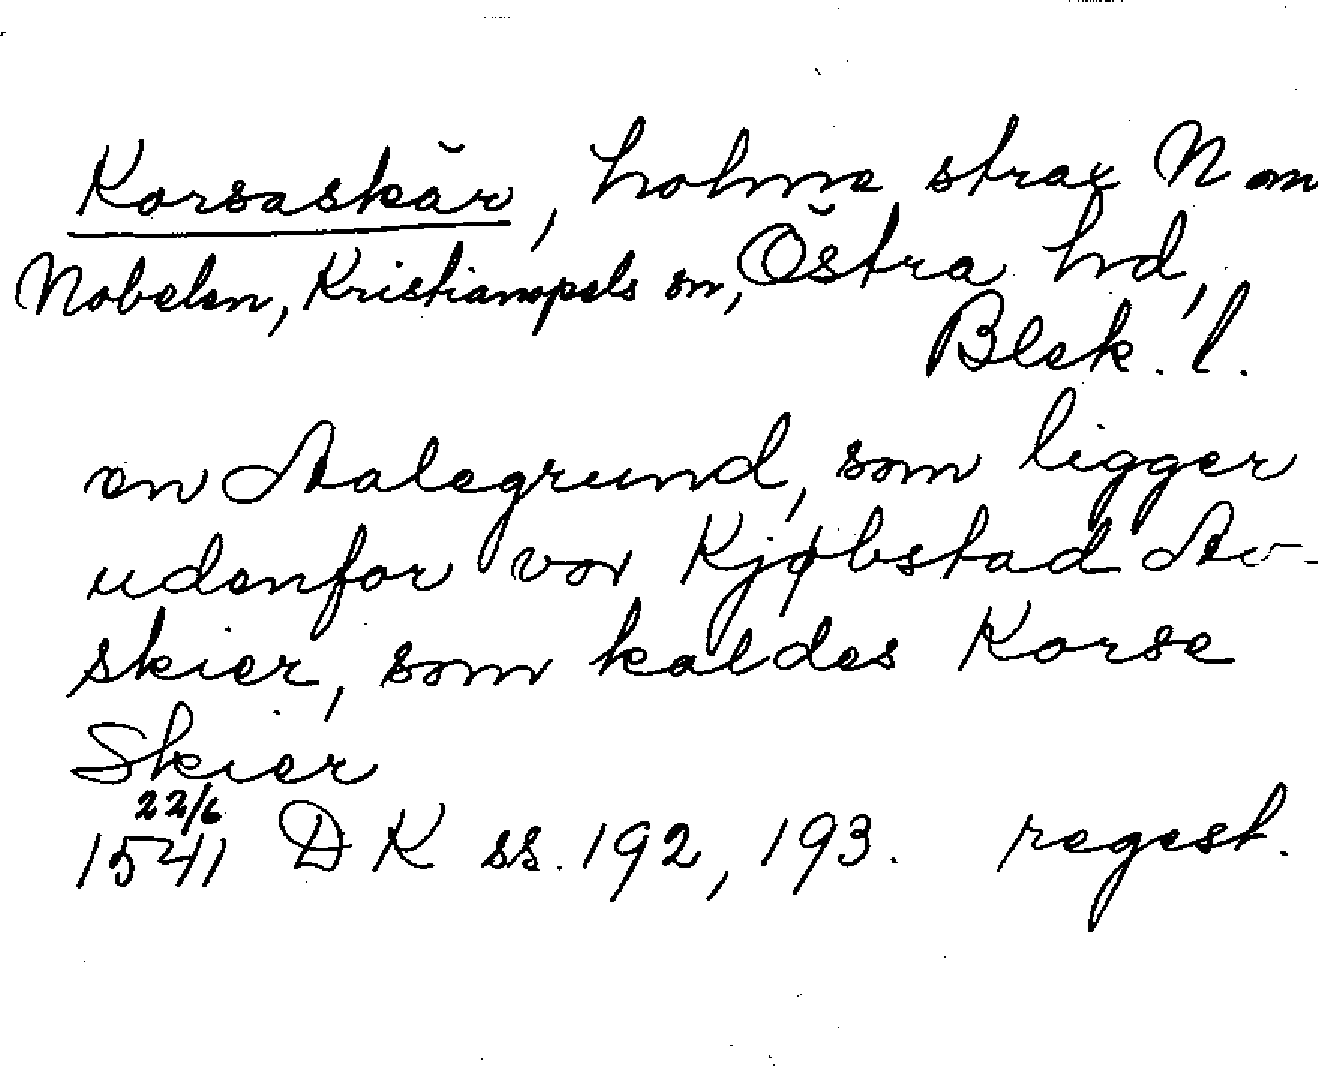 Korsaskär, holme strax N om
Nabeln, Kristianopels sn, Östra hd,
Blek. l.
en Aalegrund, som ligger
udenfor vor Kjøbstad Av-
skier, som kaldes Korse
Skier
22/6
1541 DK ss. 192, 193. regest.